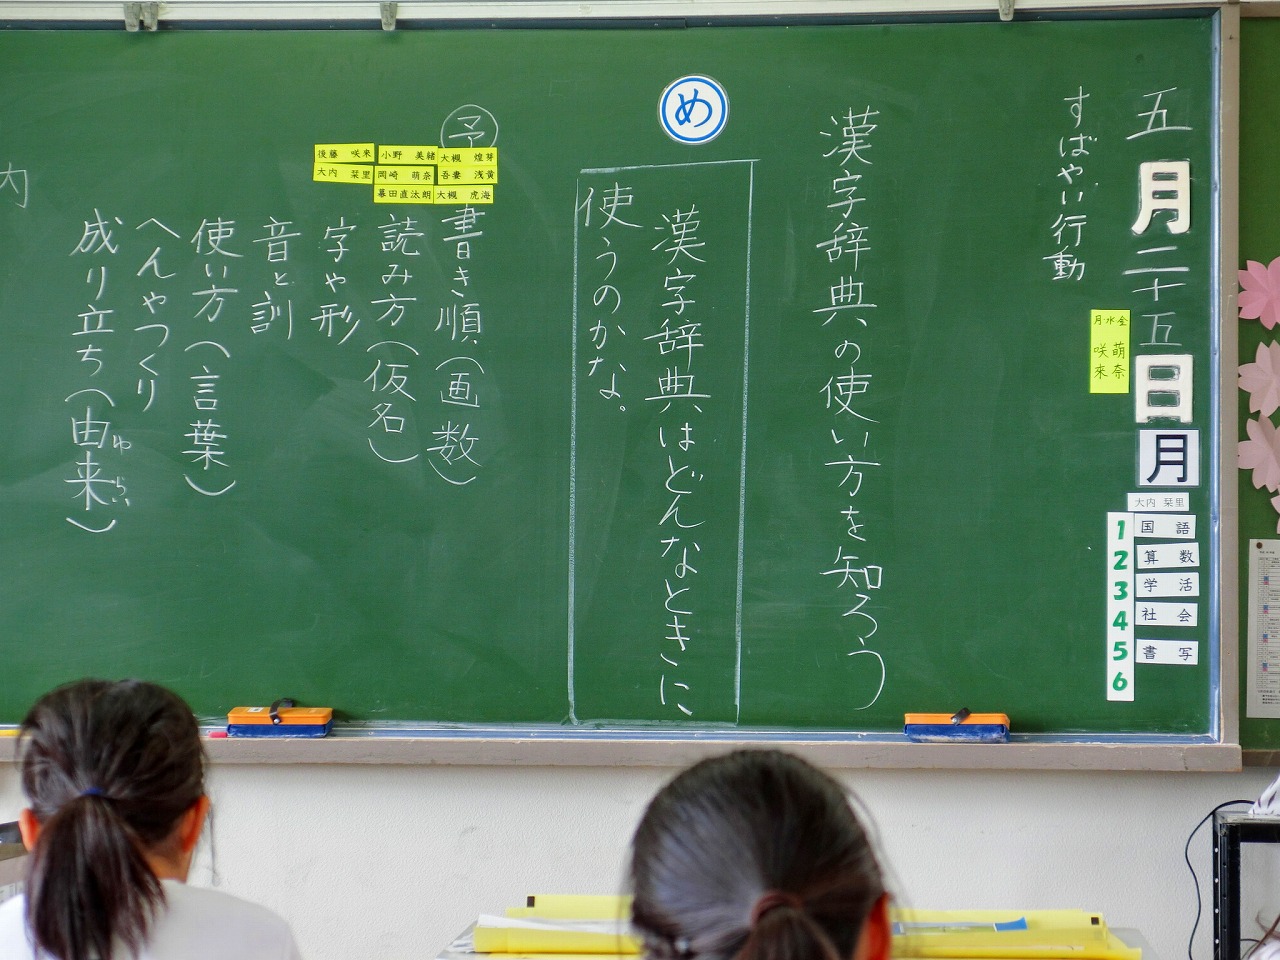 五月二十五日月
大内 栞里
1 国語
2 算数
3 学活
4 社会
5 書写
6
月水金
萌奈
咲來
すばやい行動
漢字辞典の使い方を知ろう
め
漢字辞典はどんなときに
使うのかな。
予
大槻 煌芽
吾妻 浅黄
大槻 虎海
小野 美緒
岡崎 萌奈
幕田直太朗
後藤 咲来
大内 栞里
書き順(画数)
読み方(仮名)
字や形
音と訓
使い方(言葉)
へんやつくり
成り立ち(由来)
ゆらい
内